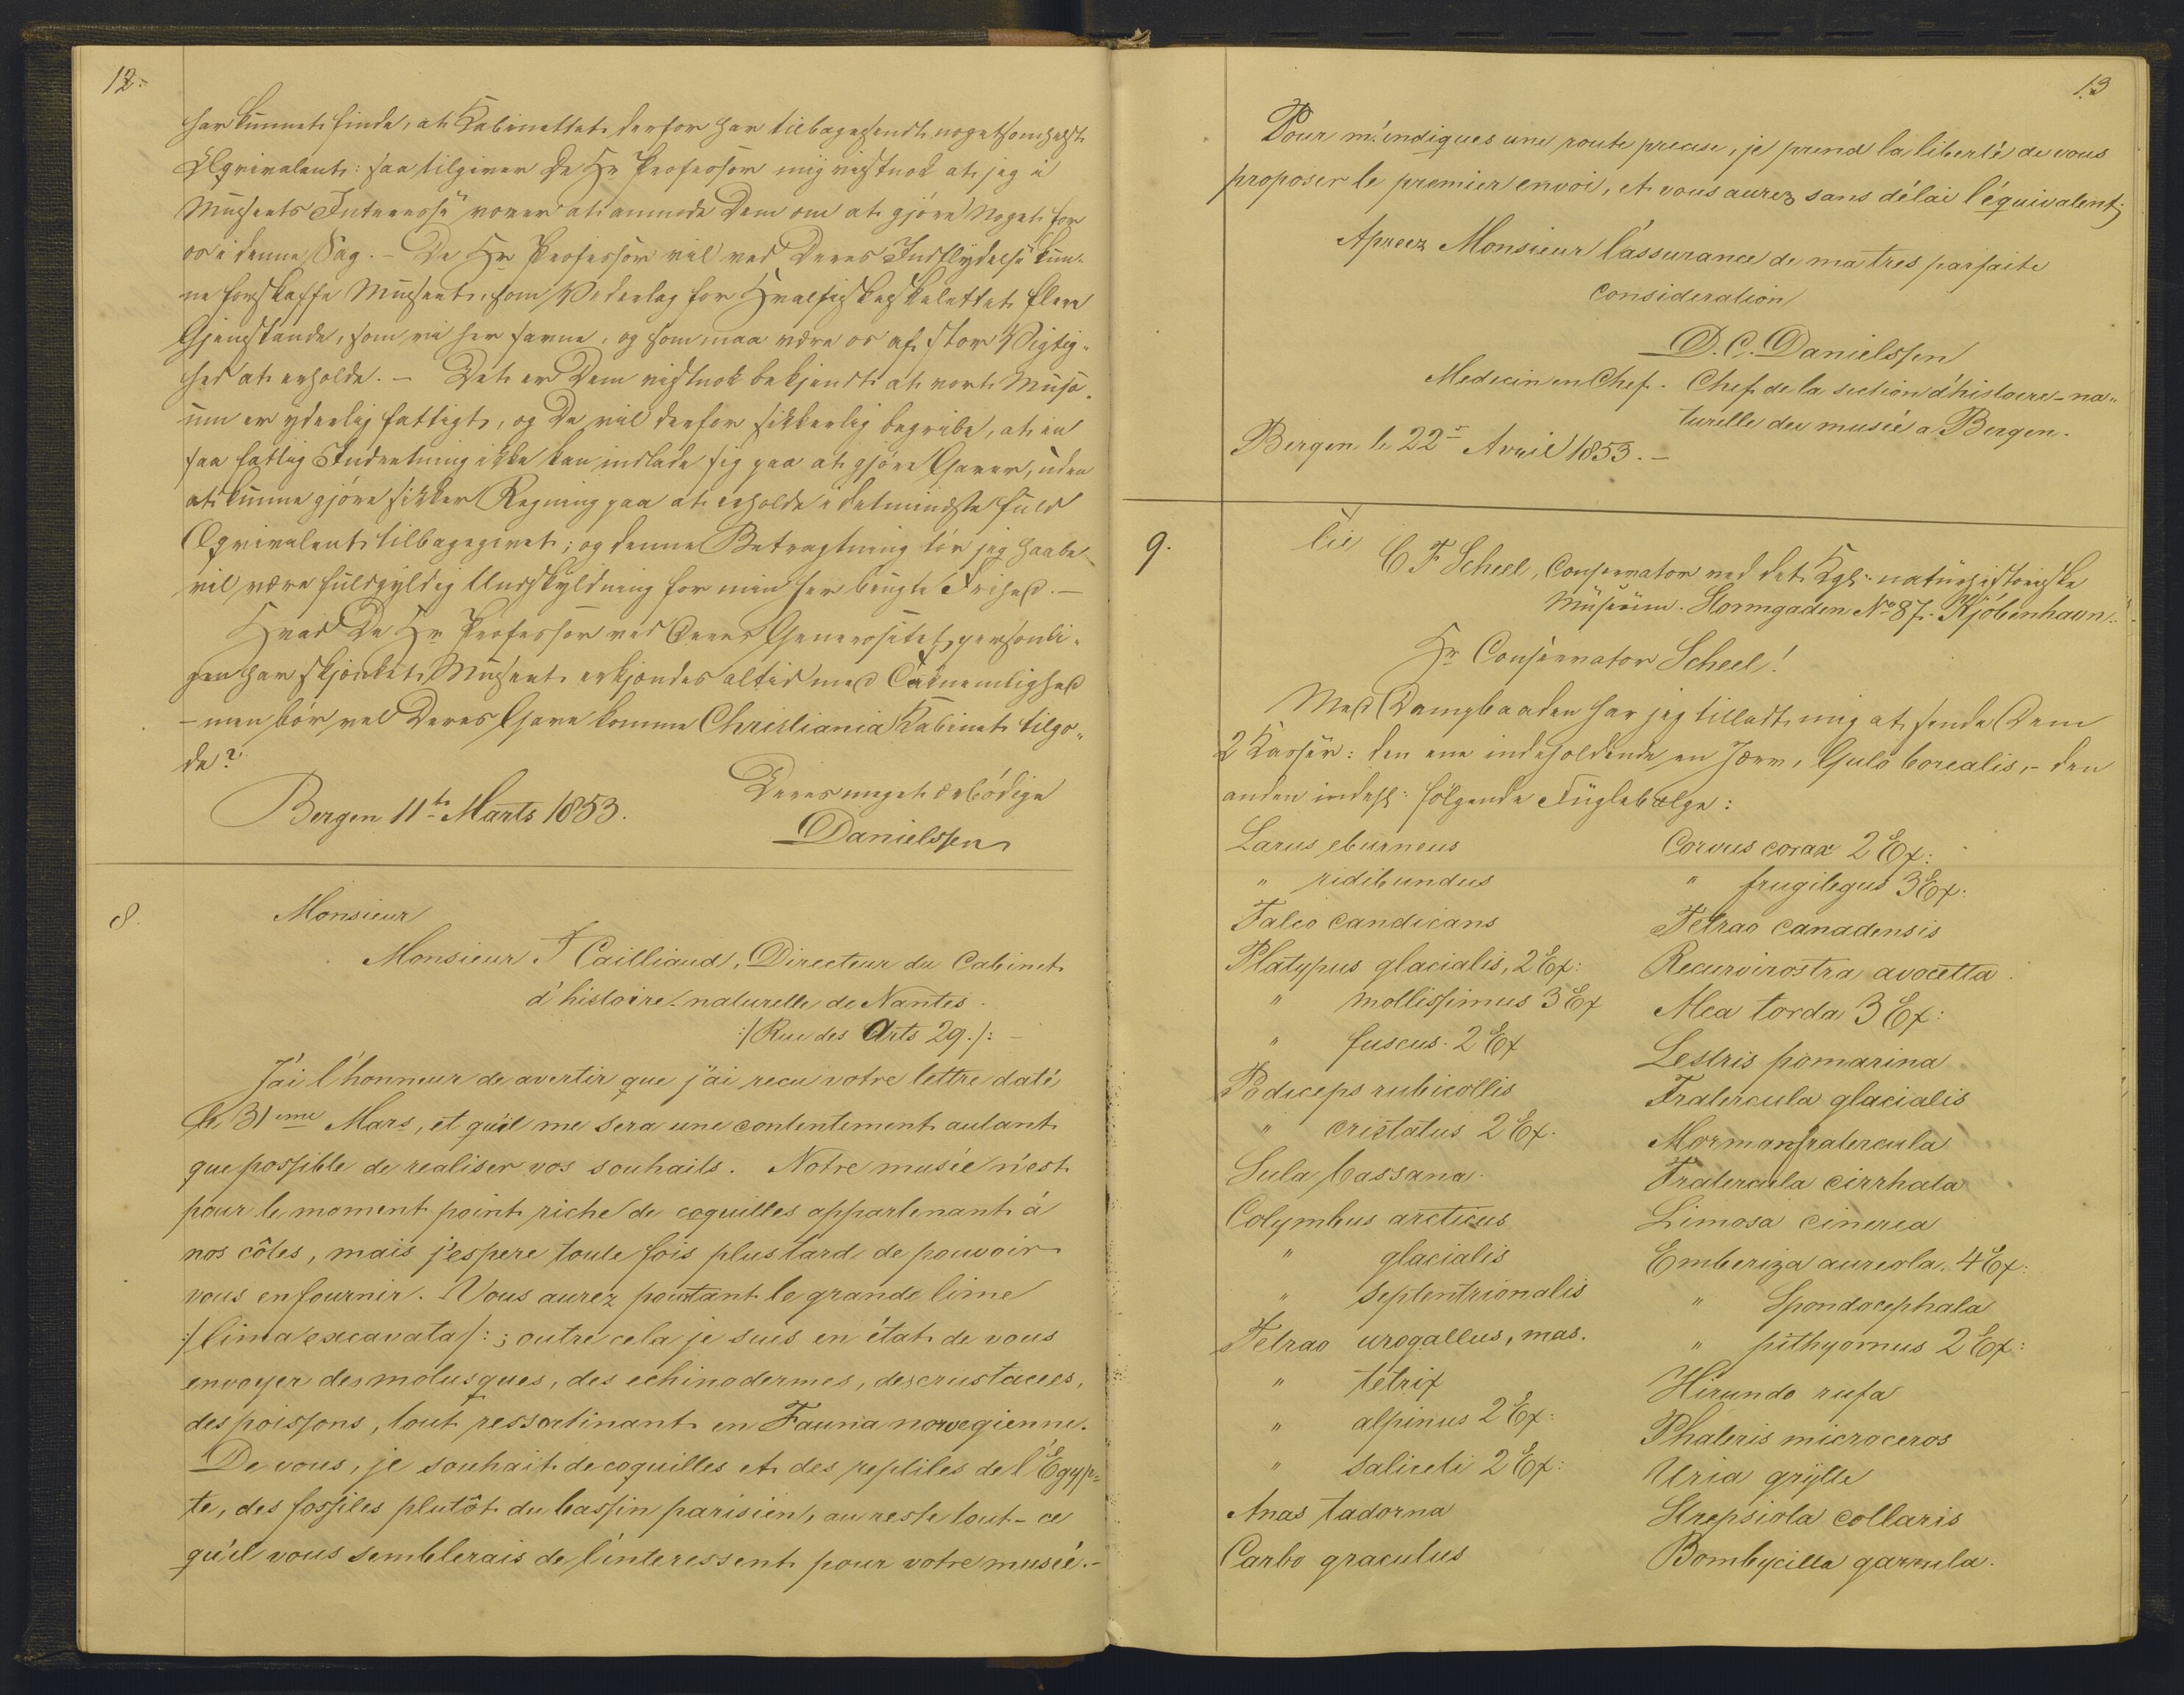 12.
har kunnet finde, at Kabinettet derfor har tilbagesendt nogetsomhelst
Æqvivalent: saa tilgiver De Hr Professor mig vistnok at jeg i
Museets Interesse vover at anmode Dem om at gjöre Noget for
os i denne Sag. – De Hr Professor vil ved Deres Indflydelse kun-
ne forskaffe Museet, som Vederlag for Hvalfiskeskelettet flere
Gjenstande, som vi her savne, og som maa være os af stor Vigtig-
hed at erholde. – Det er Dem vistnok bekjendt at vort Muse-
um er yderlig fattigt, og De vil derfor sikkerlig begribe, at en
saa fattig Indretning ikke kan indlade sig paa at gjöre Gaver, uden
at kunne gjöre sikker Regning paa at erholde i detmindste fuld
Æqvivalent tilbagegivet; og denne Betragtning tör jeg haabe
vil være fuldgyldig Undskyldning for min her brugte Frihed. –
Hvad De Hr Professor ved Deres Generositet personli-
gen har skjænket Museet erkjendes altid med Taknemlighed
– men bör vel Deres Gave komme Christiania Kabinet tilgo-
de?
Deres meget ærbödige
Bergen 11te Marts 1853.
Danielssen
8.
Monsieur
Monsieur F Cailliaud, Directeur du Cabinet
d'histoire-naturelle de Nantes.
:/Rue des Arts 29./: –
J'ai l'honneur de avertir que j'ai recu votre lettre daté
le 31eme Mars, et qu'il me sera une contentement autant
que possible de realiser vos souhaits. Notre musée n'est
pour le moment point riche de coquilles appartenant à
nos côtes, mais j'espere toute fois plus tard de pouvoir
vous en fournir. Vous aurez pourtant le grande lime
:/lima excavata/: ; outre cela je suis en état de vous
envoyer des molusques, des echinodermes, des crustacees,
des poissons, tout ressortinant en Fauna norvegienne.
De vous, je souhait de coquilles et des reptiles de l'Égyp-
te, des fossiles plutôt du bassin parisien, au reste tout-ce
qu'il vous semblerais de l'interessent pour votre musée. –
13
Pour m'endiques une route precise, je prend la liberté de vous
proposer le premier envoi, et vous aurez sans délai l'équivalent;
Apreez Monsieur l'assurance de ma tres parfaite
consideration
D. C. Danielssen
Medecin en Chef. Chef de la section d'histoire-na-
turelle du musée a Bergen.
Bergen le 22 Avril 1853. –
9.
C F Scheel, Conservator ved det Kgl: naturhistoriske
Museum. Stormgaden No 87. Kjöbenhavn.
Hr Conservator Scheel!
Med Dampbaaden har jeg tilladt mig at sende Dem
2 Kasser: den ene indeholdende en Jærv, Gulo borealis, – den
anden indeh: fölgende Fuglebælge:
Larus eburneus
" ridibundus
Falco candicans
Platypus glacialis, 2 Ex:
" mollissimus 3 Ex
" fuscus. 2 Ex
Podiceps rubicollis
" cristatus 2 Ex.
Sula bassana.
Colymbus arcticus
" glacialis
" septentrionalis
Tetrao urogallus, mas.
" tetrix
" alpinus 2 Ex:
" saliceti 2 Ex:
Anas tadorna
Carbo graculus
Corvus corax 2 Ex:
" frugilegus 3 Ex:
Tetrao canadensis
Recurvirostra avocetta.
Alca torda 3 Ex:
Lestris pomarina
Fratercula glacialis
Mormon fratercula
Fratercula cirrhata
Limosa cinerea
Emberiza aureola. 4 Ex:
" Spondocephala
" pithyornus 2 Ex:
Hirundo rufa
Phaleris microceros
Uria grylle
Strepsiola collaris
Bombycilla garrula.